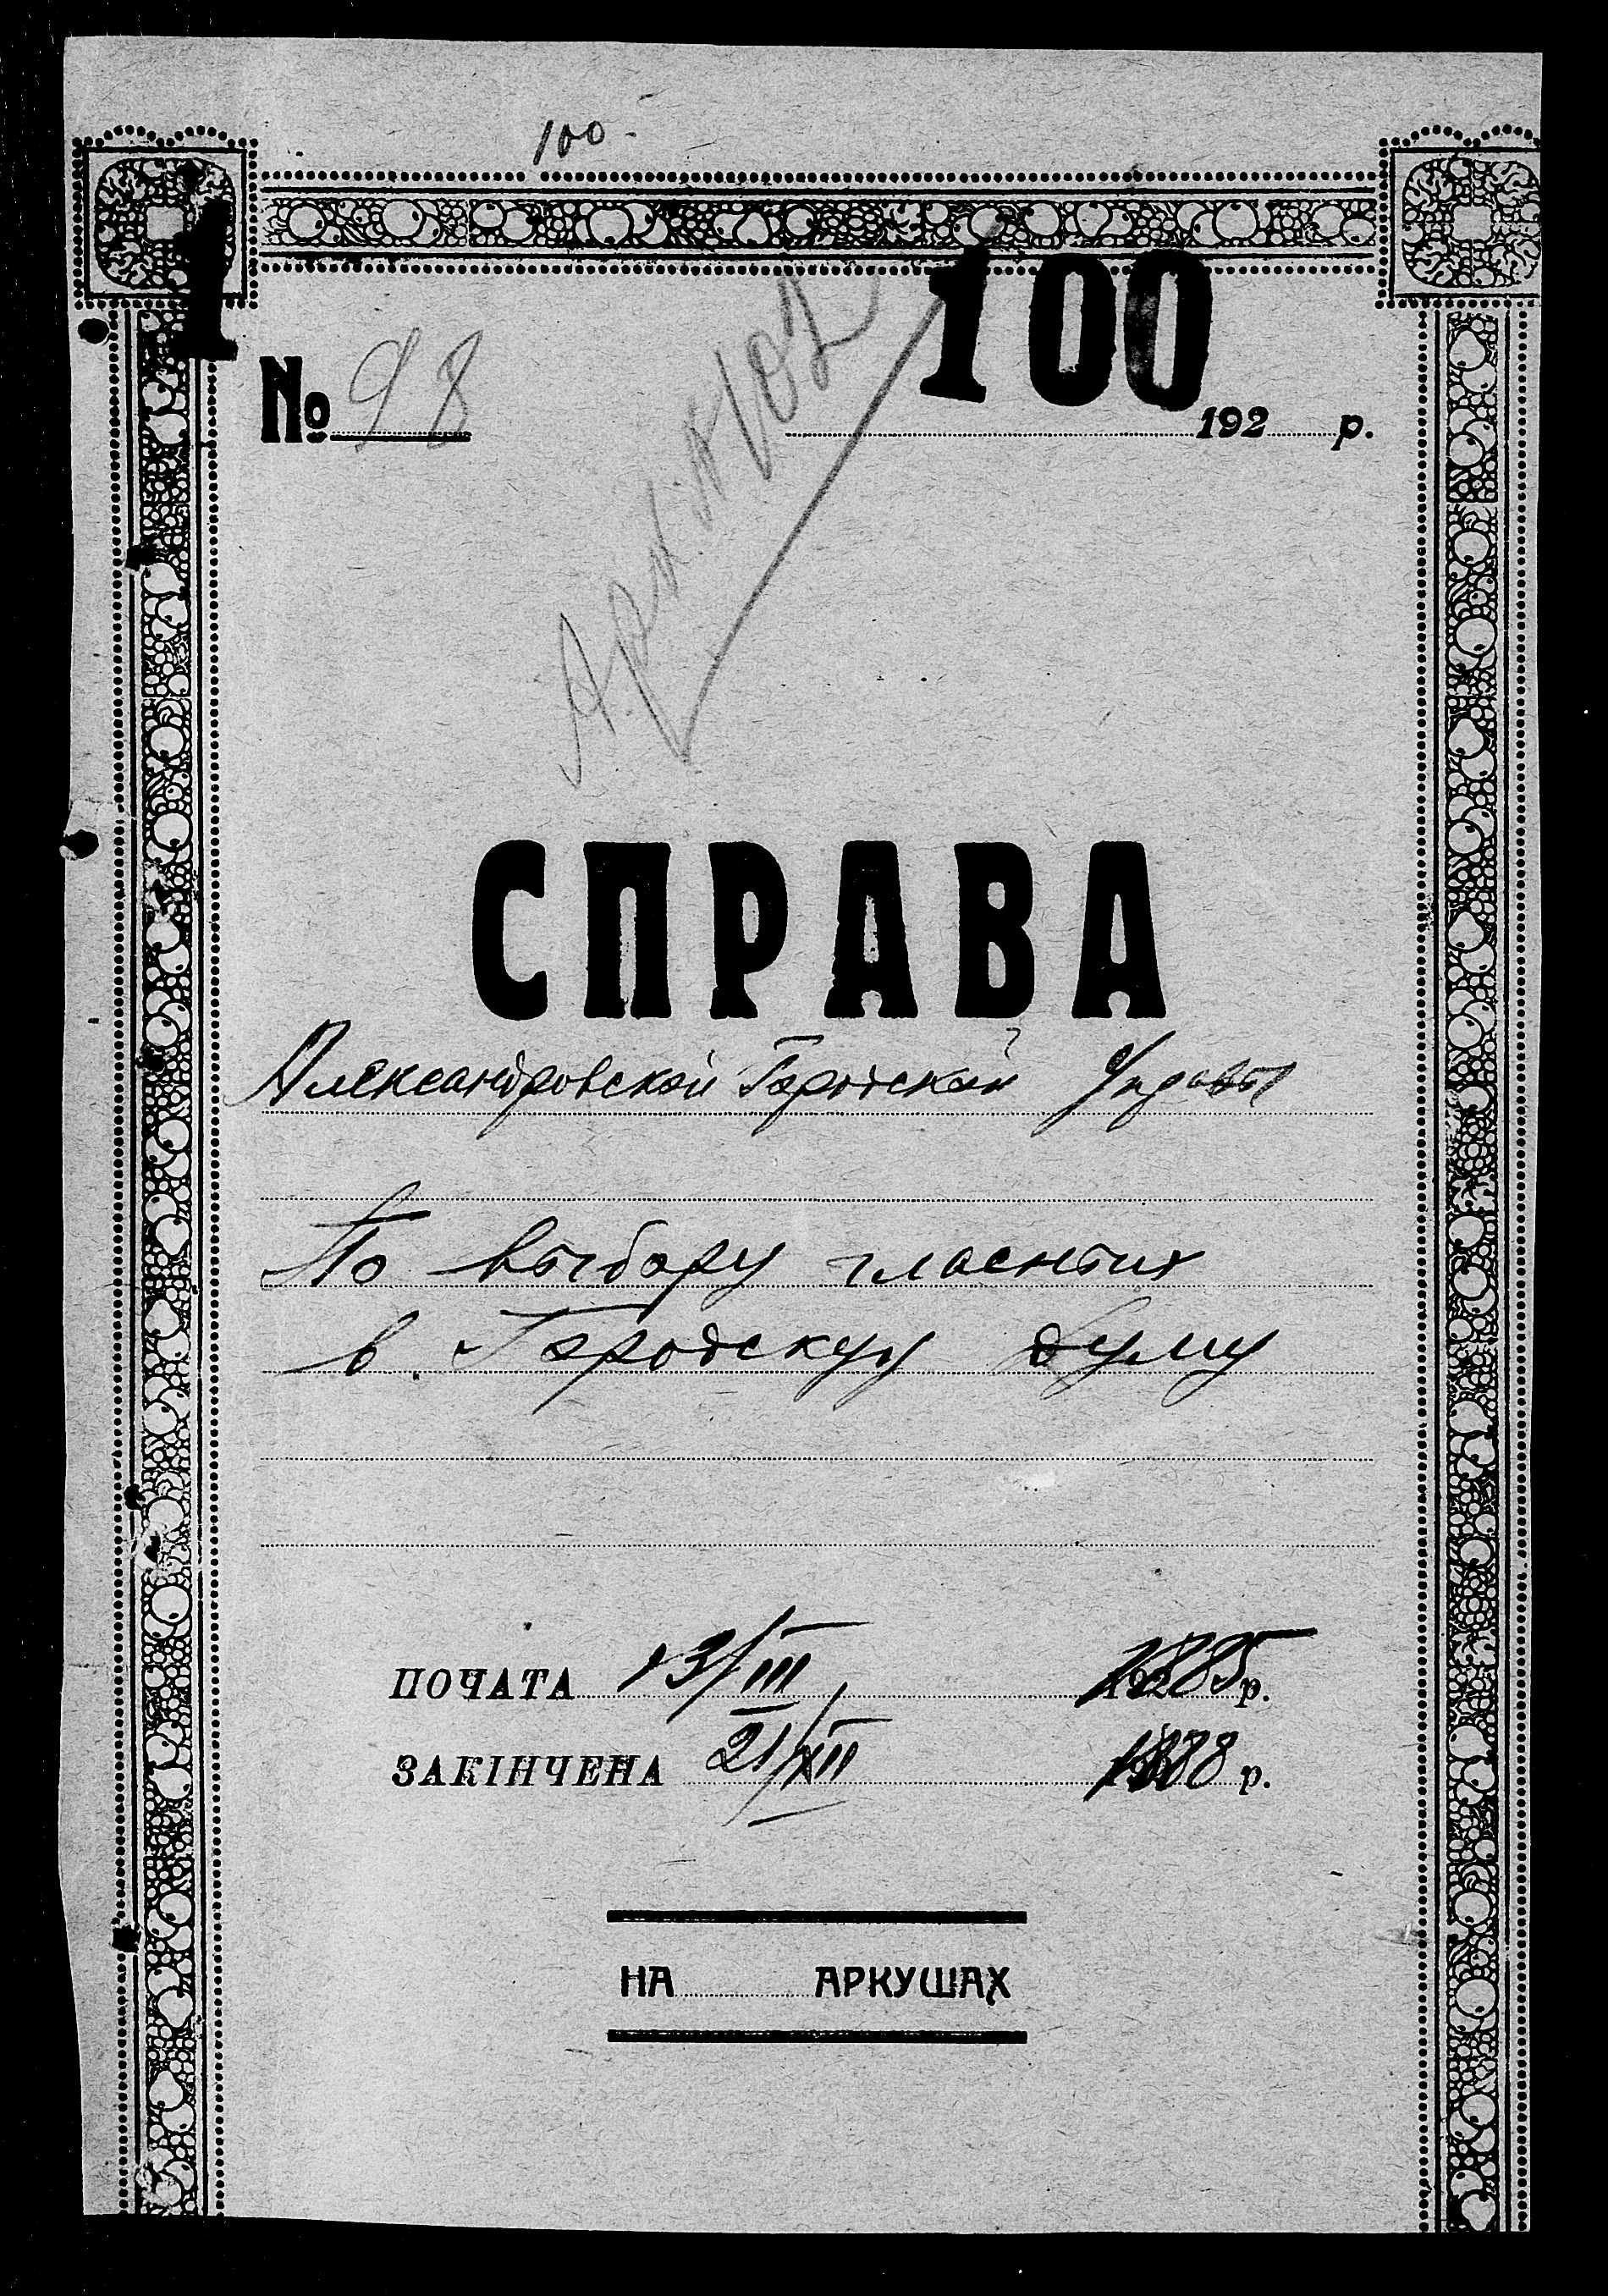 100
1
100
№ 98
192 р.
Арк. № 102
СПРАВА
Александровской Городской Управы
По выбору гласных
в Городскую думу
ПОЧАТА 13/III 1885 р.
ЗАКІНЧЕНА 21/XII 1888 р.
НА АРКУШАХ